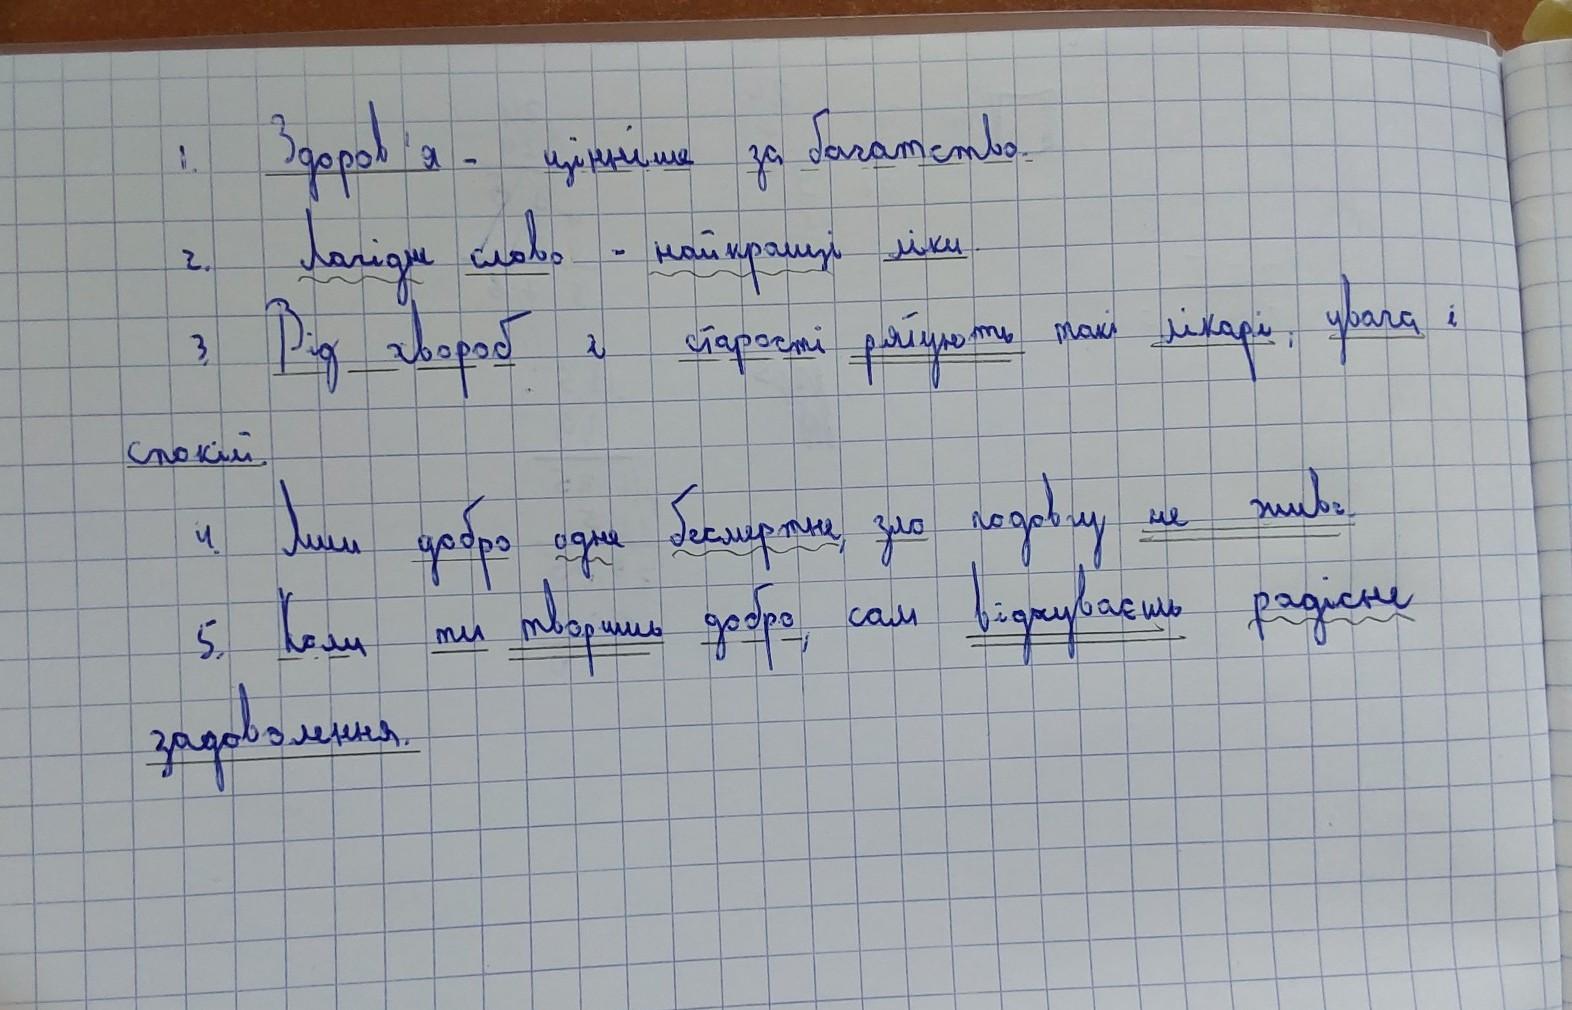 1. Здоров'я - цінніше за багатство.
2. Лагідне слово - найкращі ліки.
3 Від хвороб і старості рятують такі лікарі: увага і
спокій.
4. Лиш добро одне безсмертне, зло подовгу не живе.
5. Коли ти твориш добро, сам відчуваєш радісне
задоволення.